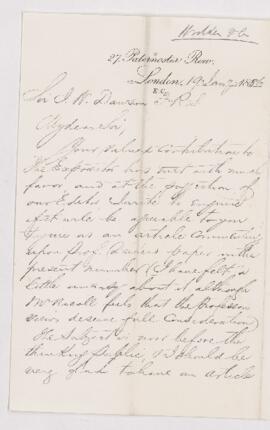 27, Paternoster Row,
London, 19 Jany 1886
E.C.
Sir J. W. Dawson
My dear Sir,
Your valued contribution to
the Expositor has met with much
favor, and at the suggestion of
our Editor I write to enquire
if it will be agreeable to you
to give us an article commenting
upon Prof. paper in the
present number (I have felt a
little uneasy about it although
Mr Nicoll feels that the Professor
views deserve full consideration)
The subject is now before the
thinking public, & I should be
very glad to have an article